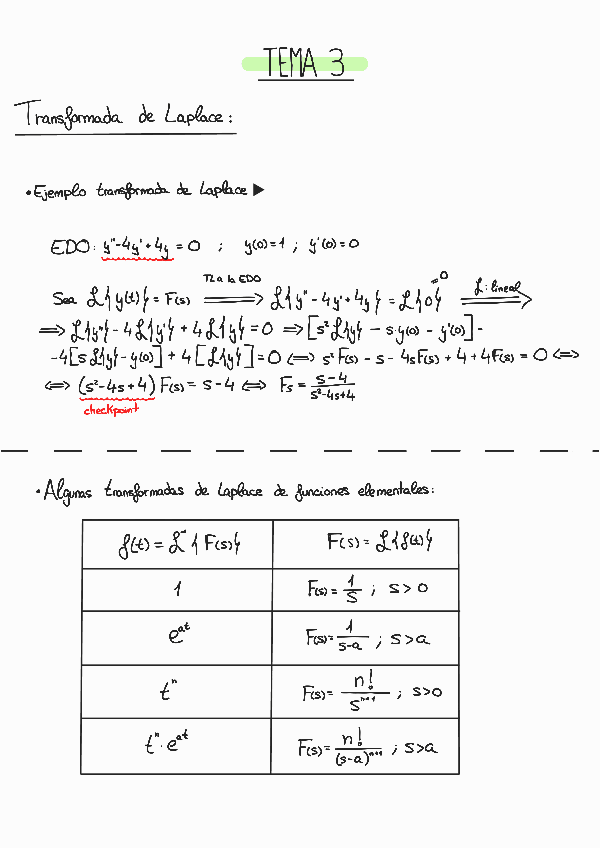 TEMA 3
Transformada de Laplace:
• Ejemplo transformada de Laplace ▶
EDO: y''-4y'+4y = 0 ; y(0)=1 ; y'(0)=0
Sea ℒ{y(t)} = F(s) ⟹ (TL a la EDO) ℒ{y''-4y'+4y} = ℒ{0} (=0) ⟹ (ℒ: lineal)
⟹ ℒ{y''} - 4ℒ{y'} + 4ℒ{y} = 0 ⟹ [s²ℒ{y} - s·y(0) - y'(0)] -
-4[sℒ{y} - y(0)] + 4[ℒ{y}] = 0 ⟺ s²F(s) - s - 4sF(s) + 4 + 4F(s) = 0 ⟺
⟺ (s²-4s+4) F(s) = s-4 ⟺ Fs = (s-4)/(s²-4s+4)
checkpoint
• Algunas transformadas de Laplace de funciones elementales:
f(t) = ℒ⁻{F(s)} F(s) = ℒ{f(t)}
1 F(s) = 1/s ; s>0
e^at F(s) = 1/(s-a) ; s>a
t^n F(s) = n!/s^(n+1) ; s>0
t^n·e^at F(s) = n!/(s-a)^(n+1) ; s>a